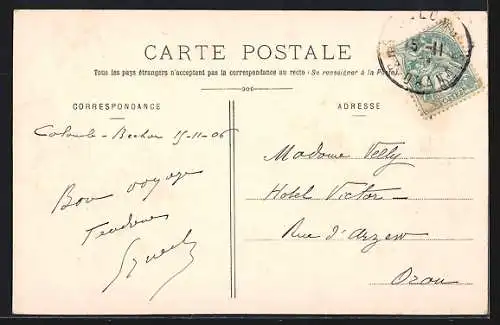 CARTE POSTALE
Tous les pays étrangers n'acceptent pas la correspondance au recto (Se renseigner à la Poste).
CORRESPONDANCE
ADRESSE
Colomb-Bechar 15-11-06
Bon voyage
Tendresses
Madame Velly
Hotel Victor
Rue d'Arzew
Oran
15-11
ORAN
POSTES